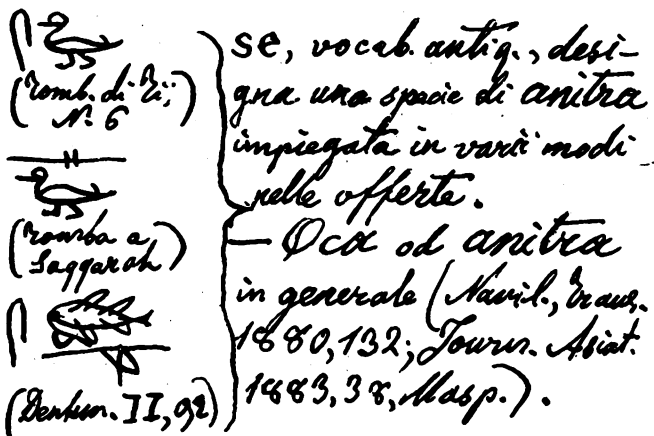 (Tomb. di Ti,
N. 6)
(Tomba a
Saqqarah)
(Denkm. II, 92)
se, vocab. antiq., desi-
gna una specie di anitra
impiegata in varii modi
nelle offerte.
— Oca od anitra
in generale (Navil.,
1880, 132; Journ. Asiat.
1883, 38, Masp.).